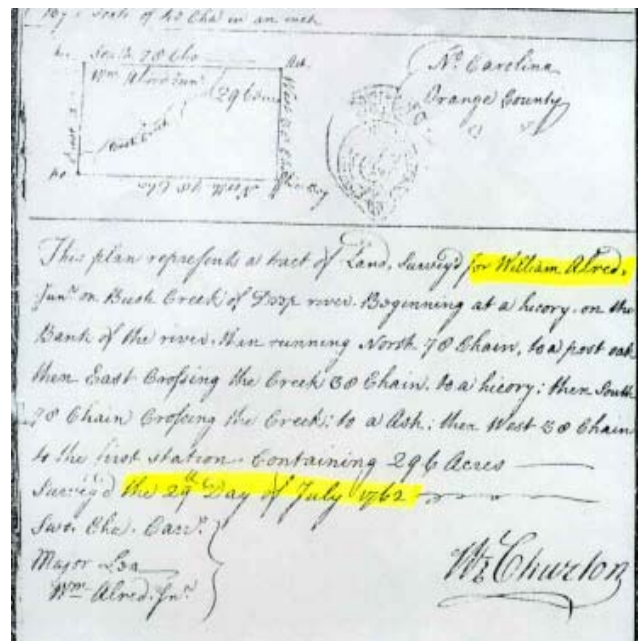 by a Scale of 40 Cha in an inch
South 78 Cha
Ash
Wm Alred Junr
296 acres
East 3
West 38 Cha
Bush Creek
North 78 Cha
No Carolina
Orange County
This plan represents a tract of Land, Surveyd for William Alred,
Junr on Bush Creek of Deep river. Beginning at a hicory on the
Bank of the river. then running North 78 Chain, to a post oak
then East Crossing the Creek 38 Chain. to a hicory; then South
78 Chain Crossing the Creek; to a Ash; then West 38 Chain
to the first station. Containing 296 Acres
Survey'd the 29th Day of July 1762
Swo. Cha. Carrs.
Major
Wm Alred. Junr
Wm Churton